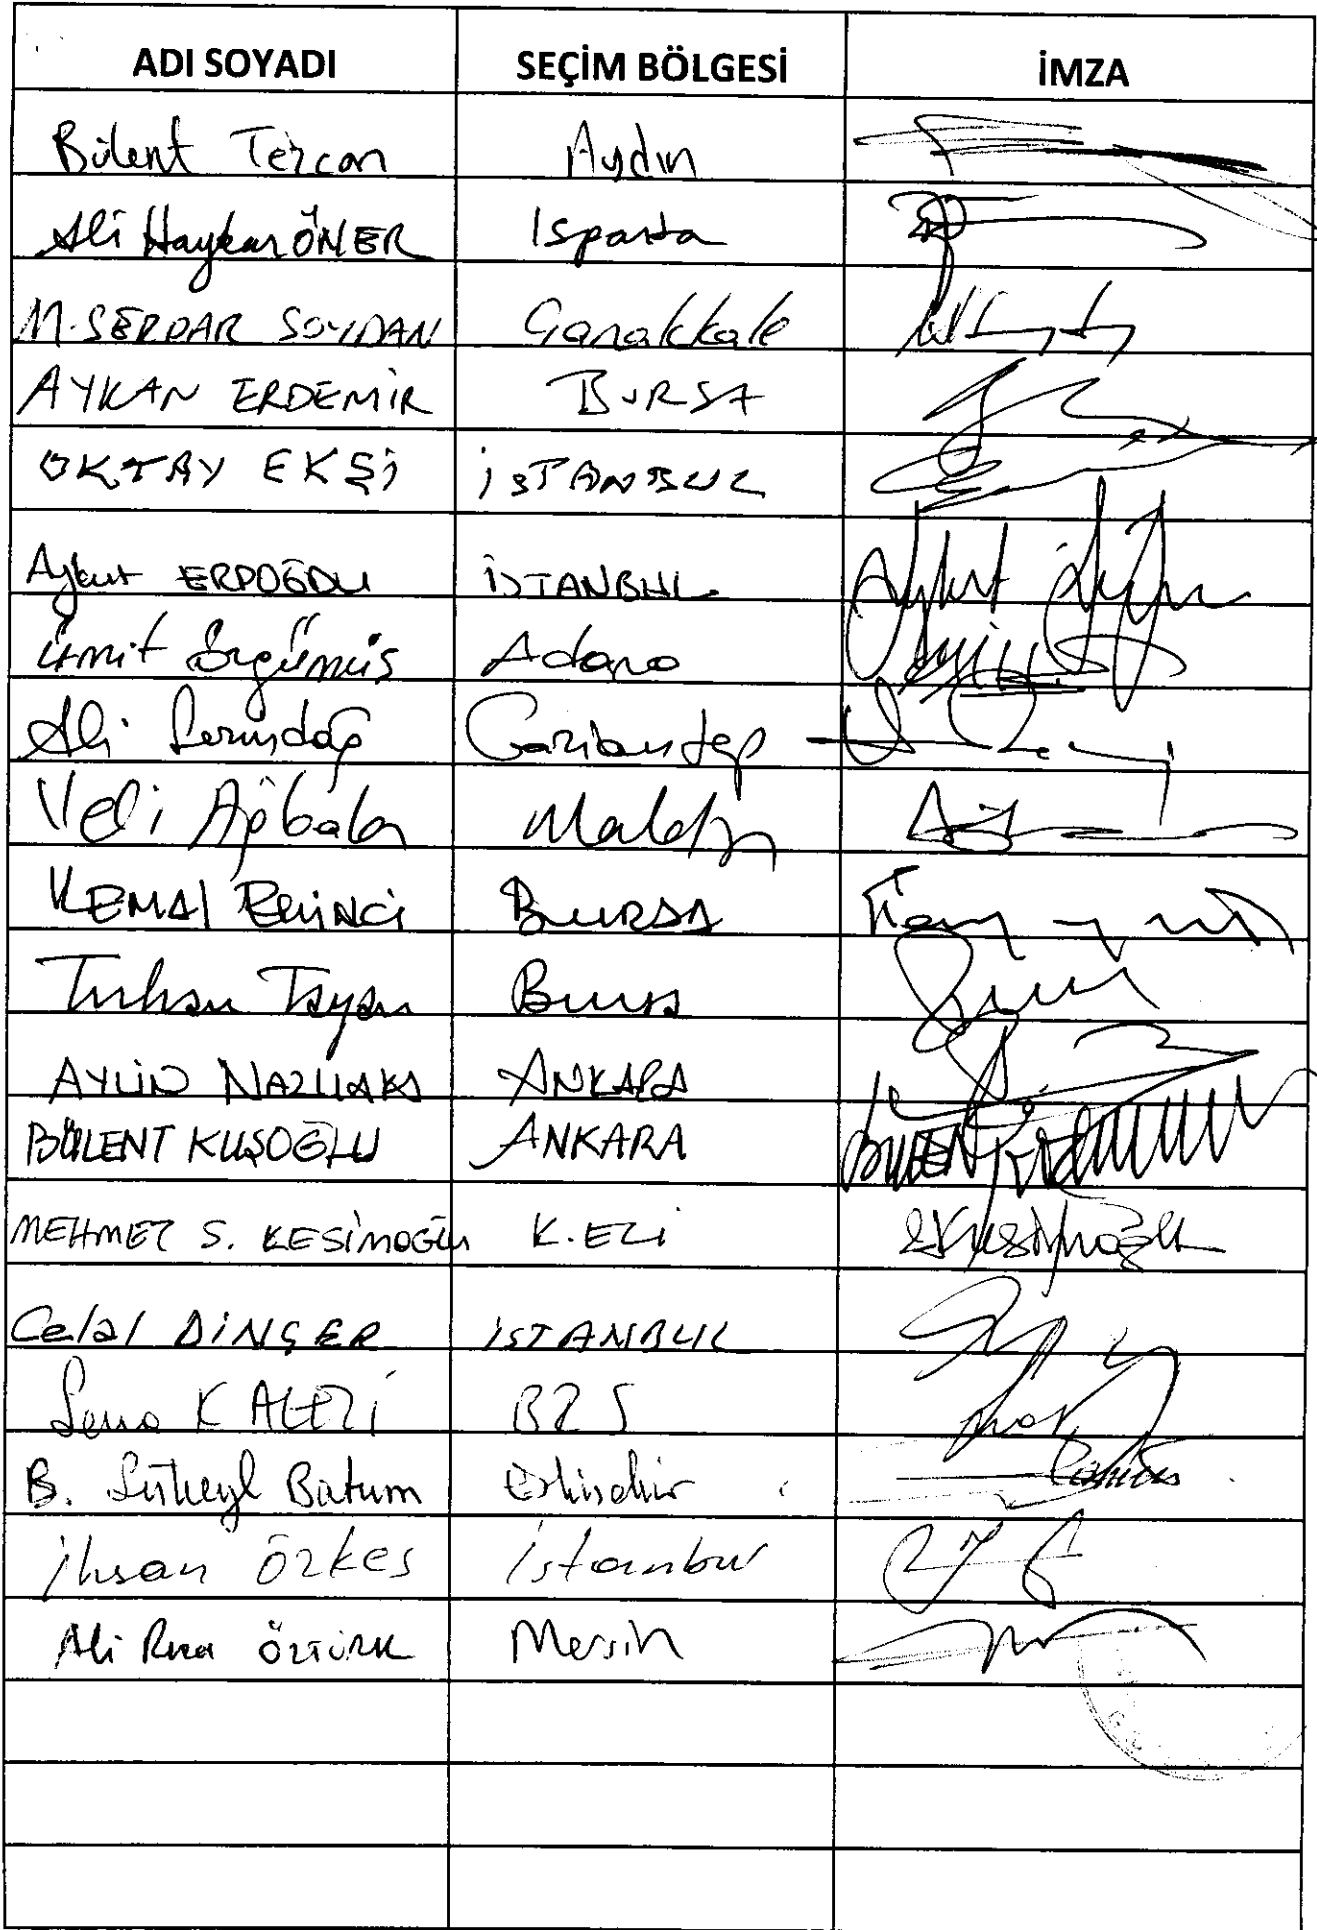 ADI SOYADI SEÇİM BÖLGESİ İMZA
Bülent Tezcan Aydın
Ali Haydar ÖNER Isparta
M. SERDAR SOYDAN Çanakkale
AYKAN ERDEMİR BURSA
OKTAY EKŞİ İSTANBUL
Aykut ERDOĞDU İSTANBUL Aykut
Ümit Özgümüş Adana
Ali Serindağ Gaziantep
Veli Ağbaba Malatya
KEMAL EKİNCİ BURSA
Turhan Tayan Bursa
AYLİN NAZLIAKA ANKARA
BÜLENT KUŞOĞLU ANKARA BÜLENT
MEHMET S. KESİMOĞLU K.ELİ Kesimoğlu
Celal DİNÇER İSTANBUL
Sena KALELİ BRS
B. Süheyl Batum Eskişehir
İhsan Özkes İstanbul
Ali Rıza ÖZTÜRK Mersin